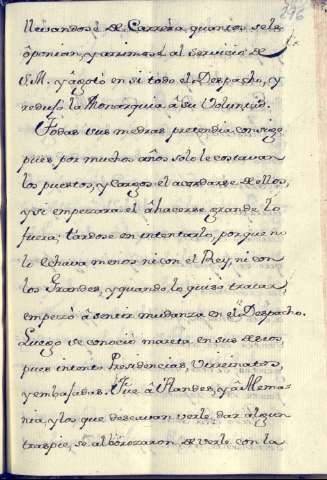 296
llevandose de Carrera, quantos se le
oponian, y arrimose al servicio de
S.M. y âgotò en si todo el Despacho, y
reduso la Monarquia à su Voluntad.
Todas sus medras pretendia consigo
pues por muchos años solo le costavan
los puestos, y Cargos el acordarse de ellos,
y si empezara el âhacerse grande lo
fuera; tardose en intentarlo, porque no
lo echava menos ni con el Rey, ni con
los Grandes, y quando lo quiso tratar,
empezò à sentir mudanza en el Despacho.
Luego se conociò en sus deseos,
pues intentò Presidencias, Virreinatos,
y embajadas. Fue â Flandes, y â Alema-
nia, y los que deseavan verle dar algun
traspie, se alborozaron de verle con la